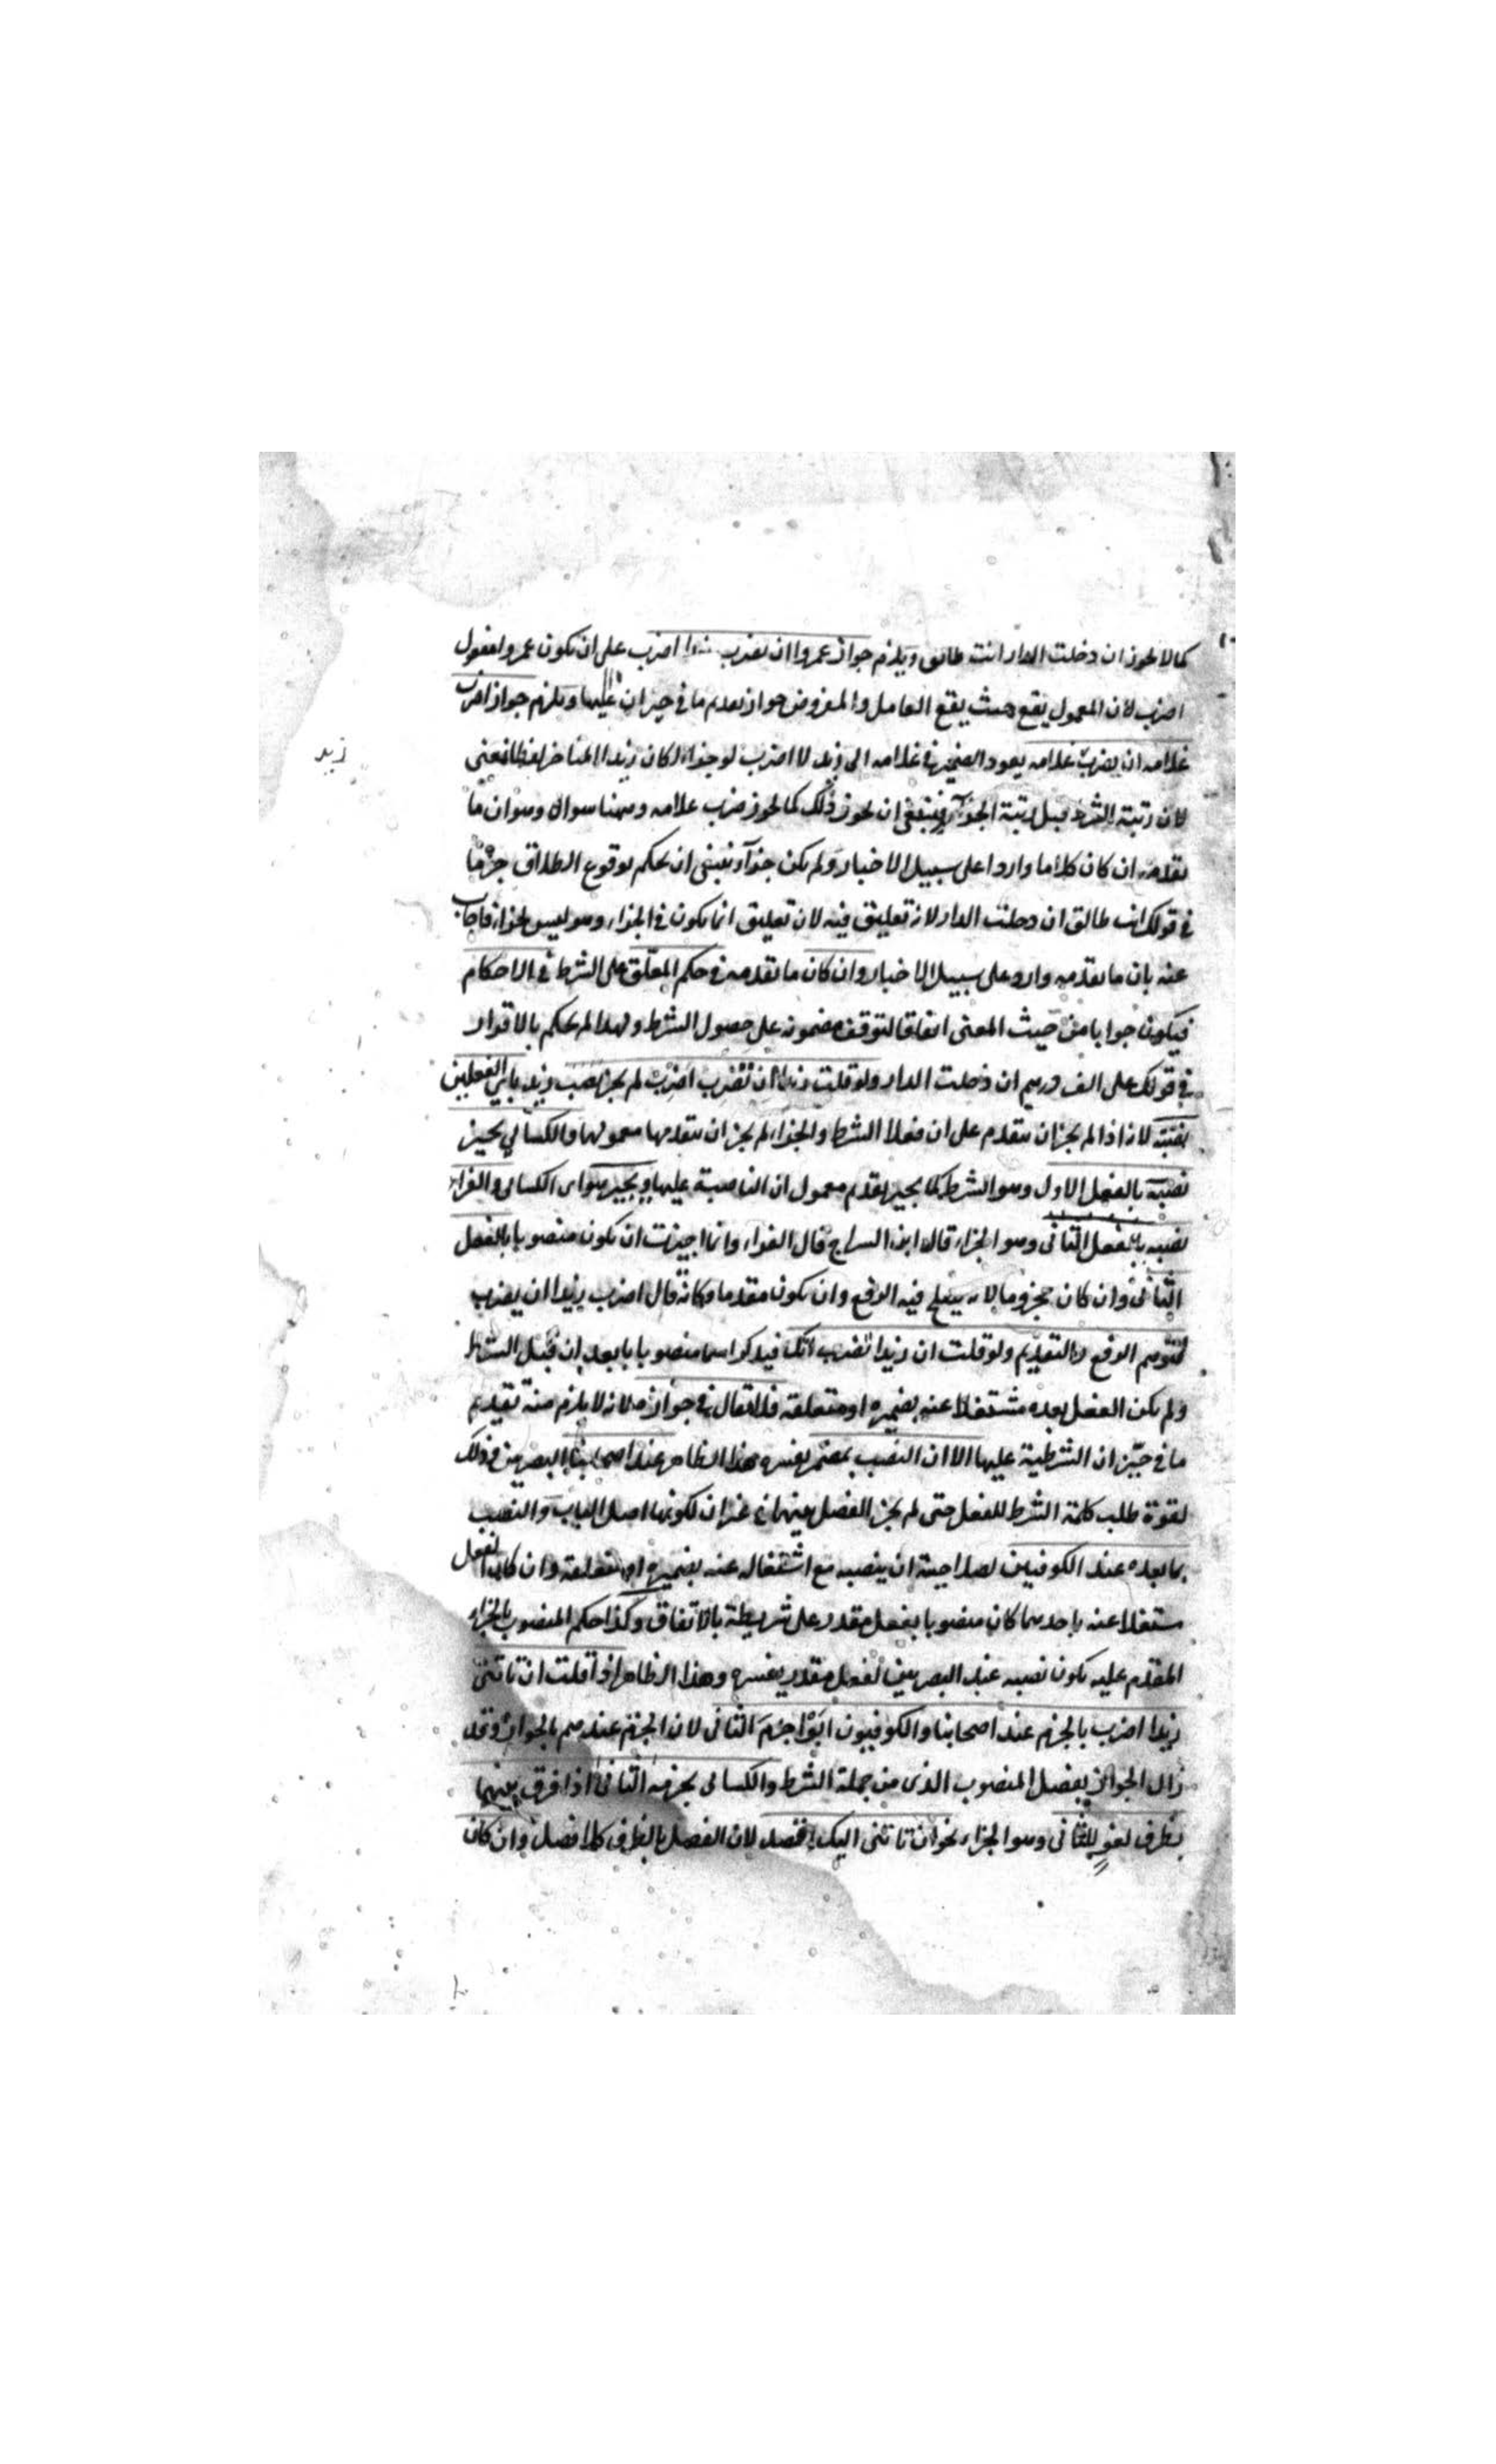 كما لا يجوز ان دخلت الدار انت طالق ويلزم جواز عمروا ان تضرب زيدا اضرب على ان يكون عمروا مفعول
اضرب لان المعمول يقع حيث يقع العامل والمفروض جواز تقدم ما في حيز ان عليها ويلزم جواز اضرب
غلامه ان يضرب غلامه يعود الضمير في غلامه الى زيد لا اضرب لو جزاء لكان زيدا المتاخر لفظا فمعنى
زيد
لان رتبة الشرط قبل رتبة الجزآء فينبغي ان يجوز ذلك كما يجوز ضرب غلامه وههنا سوال وهو ان ما
تقدمه ان كان كلاما واردا على سبيل الاخبار ولم يكن جزآء ينبغي ان يحكم بوقوع الطلاق جزما
في قولك انت طالق ان دخلت الدار لانه تعليق فيه لان تعليق انما يكون في الجزاء وهو ليس بجزاء فاجاب
عنه بان ما تقدمه وارد على سبيل الاخبار وان كان ما تقدمه في حكم المعلق على الشرط في الاحكام
فيكون جوابا من حيث المعنى اتفاقا لتوقف مضمونه على حصول الشرط ولهذا لم يحكم بالاقرار
في قولك على الف درهم ان دخلت الدار ولو قلت زيدا ان تضرب اضرب لم يجز نصب زيد باي الفعلين
لانه اذا لم يجز ان يتقدم على ان فعلا الشرط والجزاء لم يجز ان يتقدمها معمولها والكسائي يجيز
نصبه بالفعل الاول وهو الشرط كما يجيز تقدم معمول ان الناصبة عليها ويجيز هو اى الكسائي والفراء
نصبه بالفعل الثاني وهو الجزاء قال ابن السراج قال الفراء وانما اجيزت ان يكون منصوبا بالفعل
الثاني وان كان مجزوما لانه يصلح فيه الرفع وان يكون مقدما وكانه قال اضرب زيدا ان يضرب
لتوهم الرفع والتقديم ولو قلت ان زيدا تضرب اتك فيذكر اسما منصوبا بابعد ان قبل الشرط
ولم يكن الفعل بعده مشتغلا عنه بضميره او متعلقه فلا مقال في جوازه لانه لا يلزم منه تقديم
ما في حيز ان الشرطية عليها الا ان النصب بمضمر يفسره هذا الظاهر عند اصحابنا البصريين وذلك
لقوة طلب كلمة الشرط للفعل حتى لم يجز الفصل بينهما في غير ان لكونها اصل الباب والنصب
بما بعده عند الكوفيين لصلاحية ان ينصبه مع اشتغاله عنه بضميره او متعلقه وان كان الفعل
مشتغلا عنه باحدهما كان منصوبا بفعل مقدر على شريطة بالاتفاق وكذا حكم المنصوب بالجزاء
المقدم عليه يكون نصبه عند البصريين لفعل مقدر يفسره وهذا الظاهر اذا قلت ان تاتنى
زيدا اضرب بالجزم عند اصحابنا والكوفيون ابوا جزم الثاني لان الجزم عندهم بالجوار وقد
زال الجوار بفصل المنصوب الذى من جملة الشرط والكسائي يجزمه الثاني اذا فرق بينهما
بظرف لغو للثاني وهو الجزاء نحو ان تاتنى اليك اقصد لان الفصل بالظرف كلا فصل وان كان